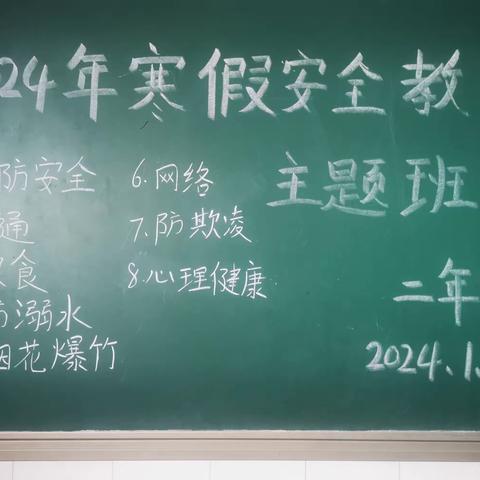 24年寒假安全教
主题班
防安全
通
食
溺水
花爆竹
6.网络
7.防欺凌
8.心理健康
二年
2024.1.